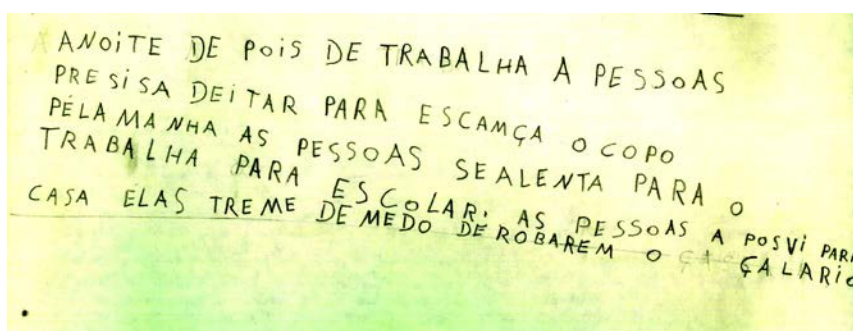 ANOITE DE POIS DE TRABALHA A PESSOAS
PRESISA DEITAR PARA ESCAMÇA O COPO
PELA MANHA AS PESSOAS SEALENTA PARA O
TRABALHA PARA ESCOLAR. AS PESSOAS A POSVI PARA
CASA ELAS TREME DE MEDO DE ROBAREM O ÇALARIO